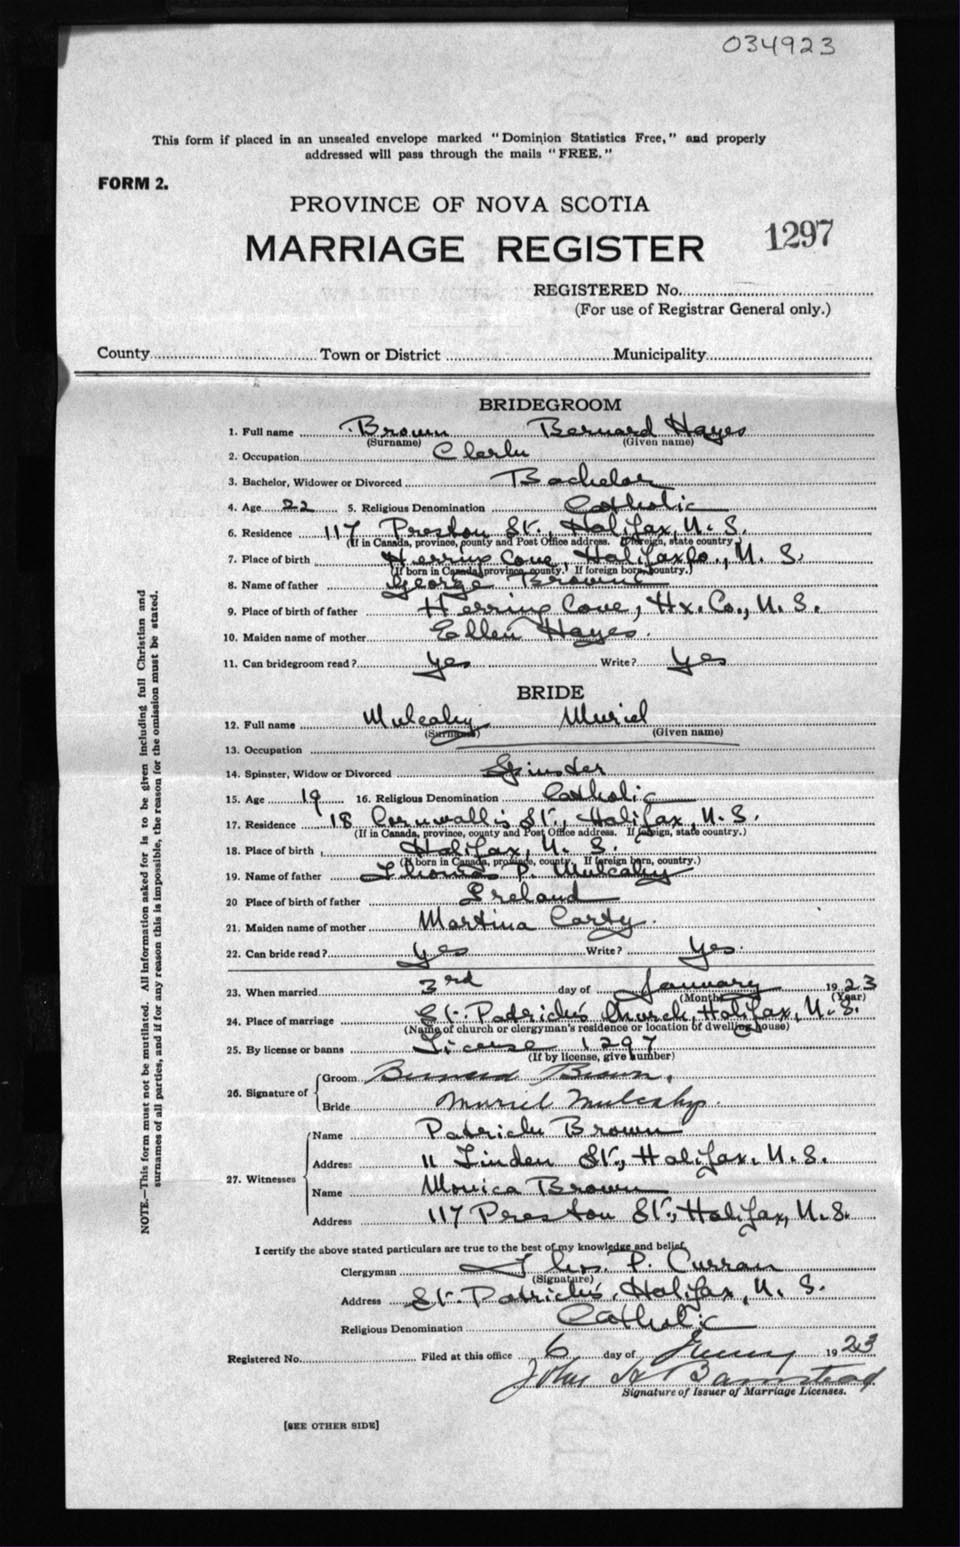 034923
This form if placed in an unsealed envelope marked "Dominion Statistics Free," and properly
addressed will pass through the mails "FREE."
FORM 2.
PROVINCE OF NOVA SCOTIA
MARRIAGE REGISTER 1297
REGISTERED No.
(For use of Registrar General only.)
County Town or District Municipality
BRIDEGROOM
1. Full name Brown Bernard Hayes
(Surname) (Given name)
2. Occupation Clerk
3. Bachelor, Widower or Divorced Bachelor
4. Age 22 5. Religious Denomination Catholic
6. Residence 117 Preston St., Halifax, N. S.
(If in Canada, province, county and Post Office address. If foreign, state country)
7. Place of birth Herring Cove Halifax Co., N. S.
(If born in Canada, province, county. If foreign born, country.)
8. Name of father George Brown
9. Place of birth of father Herring Cove, Hx. Co., N. S.
10. Maiden name of mother Ellen Hayes.
11. Can bridegroom read? yes Write? Yes
BRIDE
12. Full name Mulcahy Muriel
(Surname) (Given name)
13. Occupation
14. Spinster, Widow or Divorced Spinster
15. Age 19 16. Religious Denomination Catholic
17. Residence 18 Cornwallis St., Halifax, N. S.
(If in Canada, province, county and Post Office address. If foreign, state country.)
18. Place of birth Halifax, N. S.
(If born in Canada, province, county. If foreign born, country.)
19. Name of father Thomas P. Mulcahy
20 Place of birth of father Ireland
21. Maiden name of mother Martina Carty.
22. Can bride read? Yes Write? Yes.
23. When married 3rd day of January 1923
(Month) (Year)
24. Place of marriage St. Patrick's Church, Halifax, N. S.
(Name of church or clergyman's residence or location of dwelling house)
25. By license or banns License 1297
(If by license, give number)
26. Signature of Groom Bernard Brown.
Bride Muriel Mulcahy.
27. Witnesses Name Patrick Brown
Address 11 Linden St., Halifax. N. S.
Name Monica Brown
Address 117 Preston St., Halifax, N. S.
I certify the above stated particulars are true to the best of my knowledge and belief.
Clergyman Thos. P. Curran
(Signature)
Address St. Patrick's, Halifax, N. S.
Religious Denomination Catholic
Registered No. Filed at this office 6 day of 1923
John A Barnstead
Signature of Issuer of Marriage Licenses.
[SEE OTHER SIDE]
NOTE.—This form must not be mutilated. All information asked for is to be given including full Christian and
surnames of all parties, and if for any reason this is impossible, the reason for the omission must be stated.